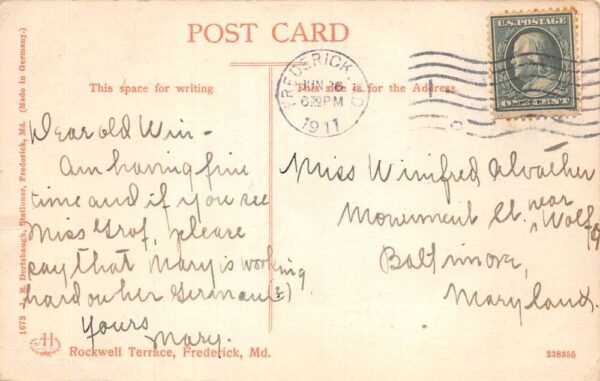 POST CARD
This space for writing
This side is for the Address.
FREDERICK, MD
JUN 26
6:30PM
1911
U.S. POSTAGE
ONE CENT
Dear old Win-
Am having fine
time and if you see
Miss Graf, please
say that Mary is working
hard on her German(?)
Yours
Mary.
Miss Winifred
Monument St. near Wolf
Baltimore,
Maryland.
1672 J. E. Dertzbaugh, Stationer, Frederick, Md. (Made in Germany.)
Rockwell Terrace, Frederick, Md.
238355